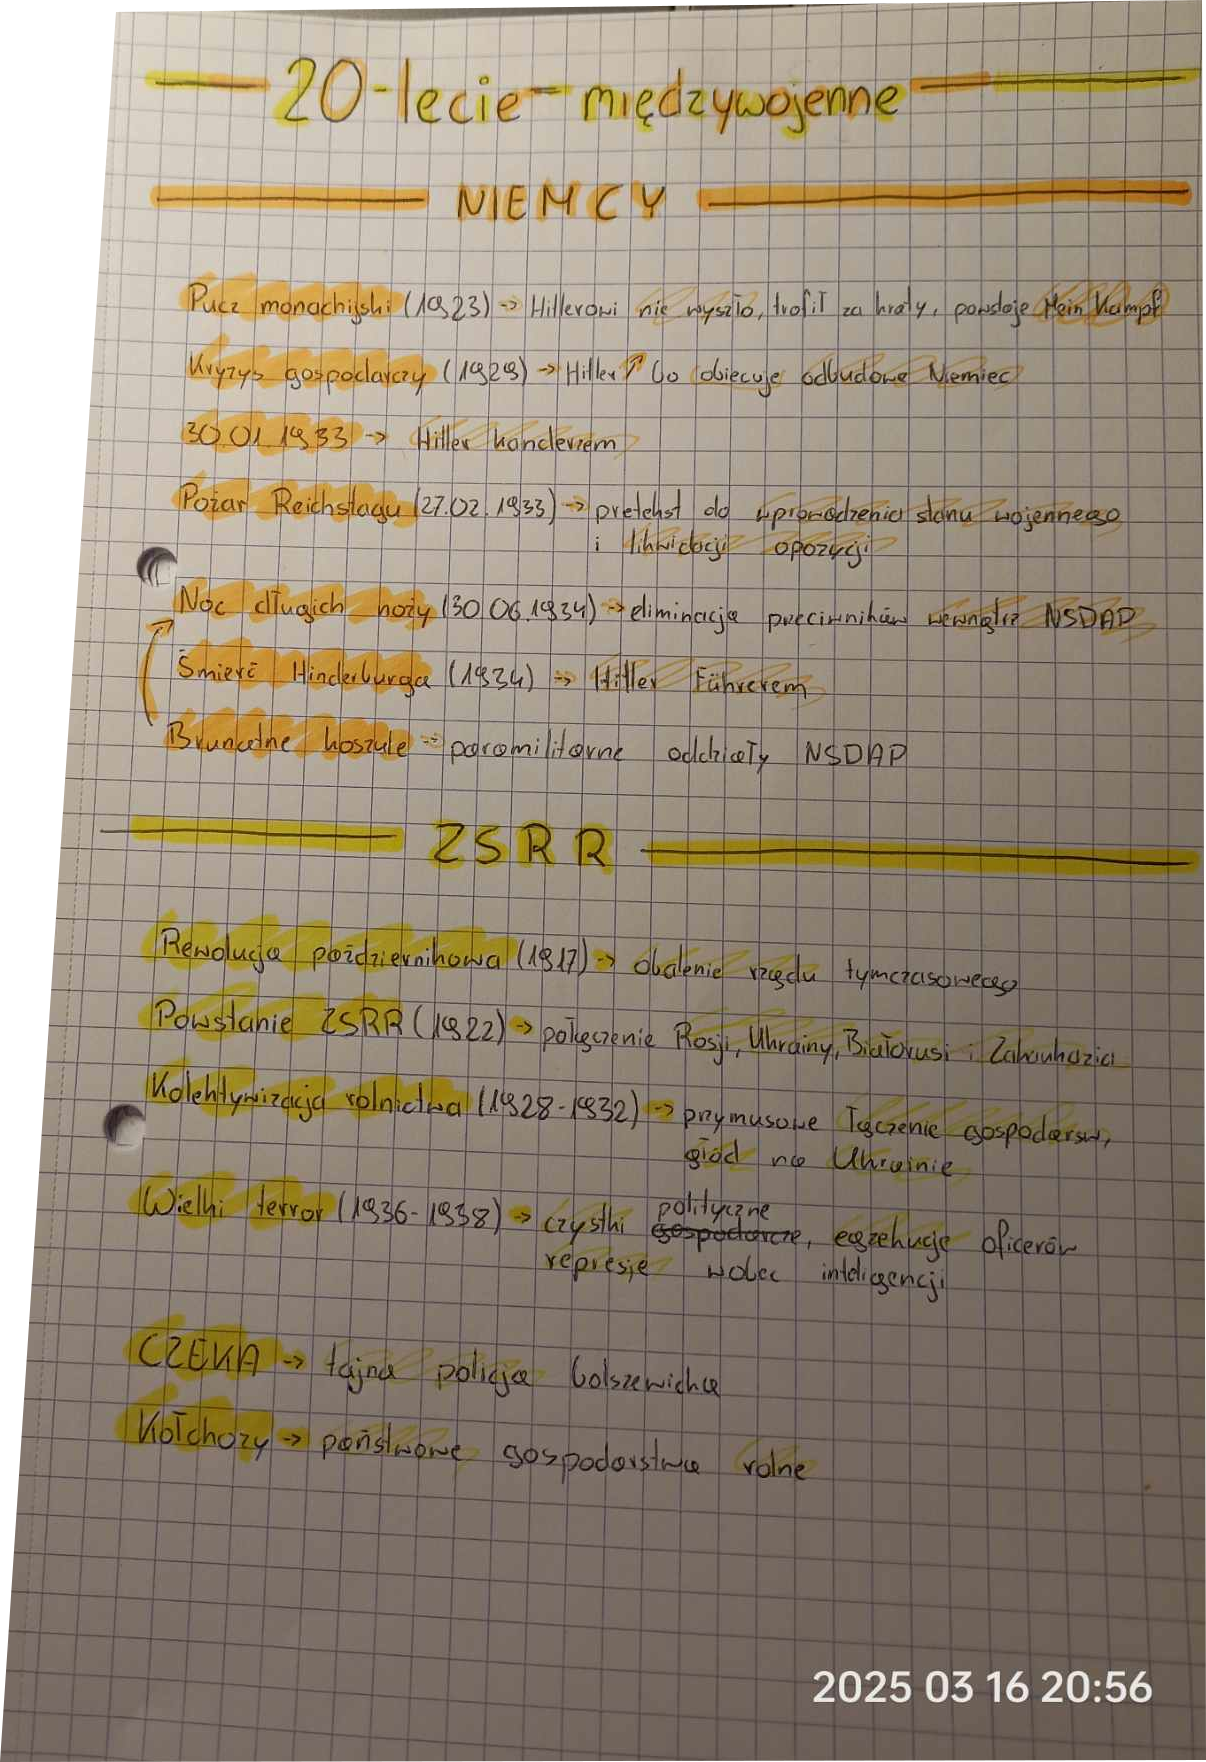 20-lecie międzywojenne
NIEMCY
Pucz monachijski (1923) → Hitlerowi nie wyszło, trafił za kraty, powstaje Mein Kampf
Kryzys gospodarczy (1929) → Hitler ↑ bo obiecuje odbudowę Niemiec
30.01.1933 → Hitler kanclerzem
Pożar Reichstagu (27.02.1933) → pretekst do wprowadzenia stanu wojennego
i likwidacji opozycji
Noc długich noży (30.06.1934) → eliminacja przeciwników wewnątrz NSDAP
Śmierć Hinderburga (1934) → Hitler Führerem
Brunatne koszule → paramilitarne oddziały NSDAP
ZSRR
Rewolucja październikowa (1917) → obalenie rządu tymczasowego
Powstanie ZSRR (1922) → połączenie Rosji, Ukrainy, Białorusi i Zakaukazia
Kolektywizacja rolnictwa (1928-1932) → przymusowe łączenie gospodarsw,
głód na Ukrainie
Wielki terror (1936-1938) → czystki polityczne gospodarcze, egzekucje oficerów
represje wobec inteligencji
CZEKA → tajna policja bolszewicka
Kołchozy → państwowe gospodarstwa rolne
2025 03 16 20:56